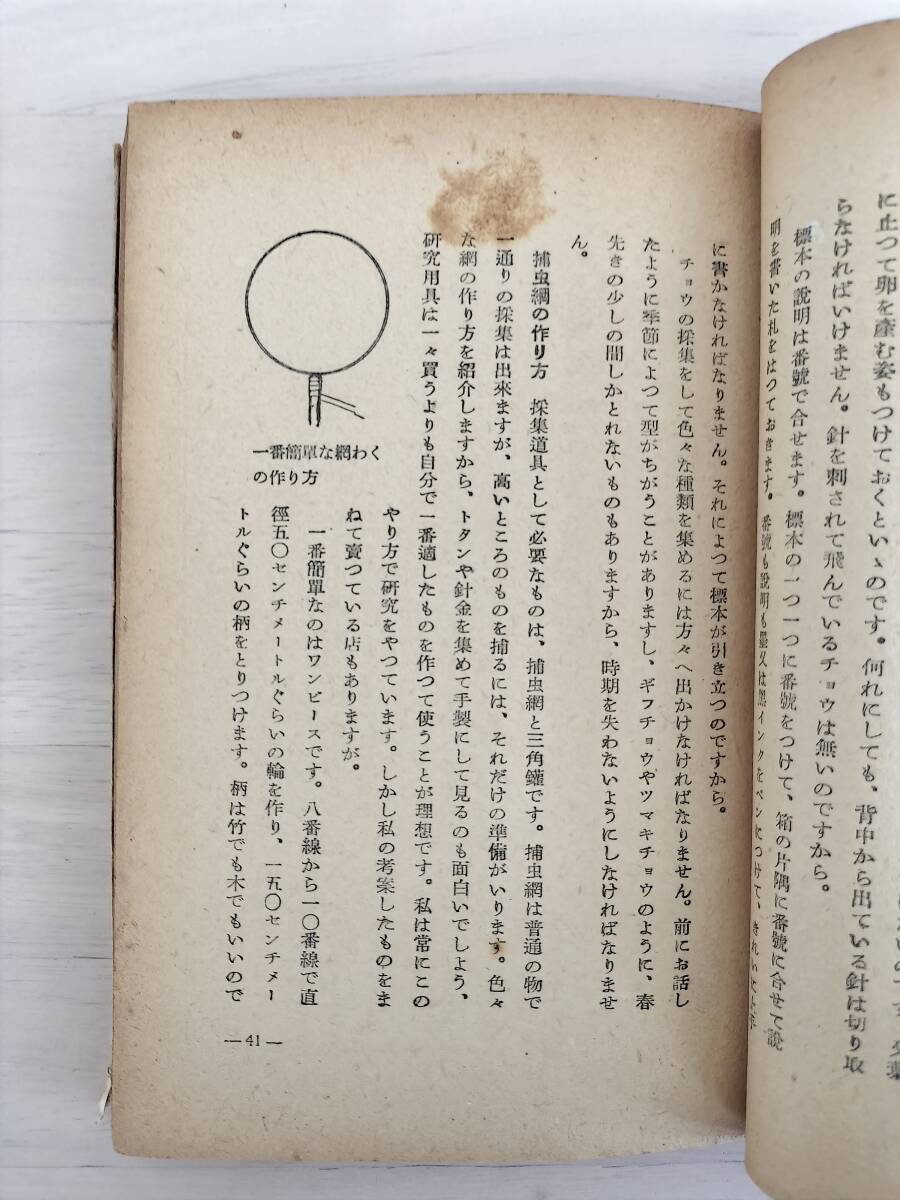 に止つて卵を産む姿もつけておくといゝのです。何れにしても、背中から出ている針は切り取
らなければいけません。針を刺されて飛んでいるチョウは無いのですから。
標本の説明は番號で合せます。標本の一つ一つに番號をつけて、箱の片隅に番號に合せて說
明を書いた札をはつておきます。番號も說明も墨又は黑インクをペンにつけて、きれいに
に書かなければなりません。それによつて標本が引き立つのですから。
チョウの採集をして色々な種類を集めるには方々へ出かけなければなりません。前にお話し
たように季節によつて型がちがうことがありますし、ギフチョウやツマキチョウのように、春
先きの少しの間しかとれないものもありますから、時期を失わないようにしなければなりませ
ん。
捕虫網の作り方　採集道具として必要なものは、捕虫網と三角罐です。捕虫網は普通の物で
一通りの採集は出來ますが、高いところのものを捕るには、それだけの準備がいります。色々
な網の作り方を紹介しますから、トタンや針金を集めて手製にして見るのも面白いでしよう、
研究用具は一々買うよりも自分で一番適したものを作つて使うことが理想です。私は常にこの
やり方で研究をやつています。しかし私の考案したものをま
ねて賣つている店もありますが。
一番簡單なのはワンピースです。八番線から一〇番線で直
徑五〇センチメートルぐらいの輪を作り、一五〇センチメー
トルぐらいの柄をとりつけます。柄は竹でも木でもいいので
一番簡單な網わく
の作り方
—41—